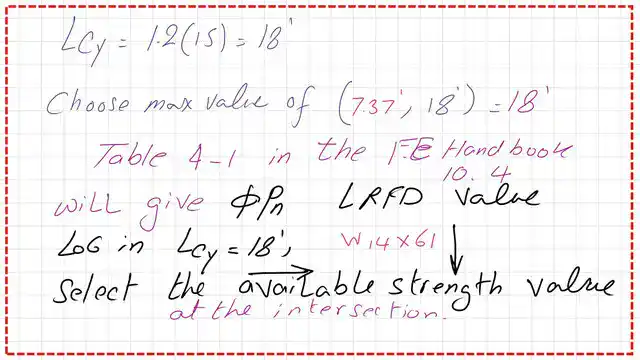 Lcy = 1.2(15) = 18'
Choose max value of (7.37', 18') = 18'
Table 4-1 in the FE Handbook
10.4
will give ΦPn LRFD value
LoG in Lcy = 18', W14x61
Select the available strength value
at the intersection.